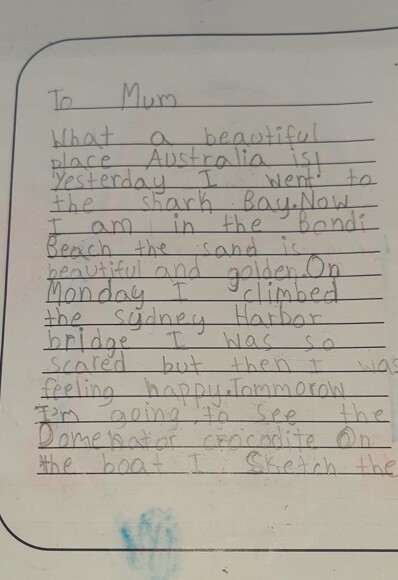 To Mum
What a beautiful
place Australia is!
Yesterday I went to
the shark Bay. Now
I am in the Bondi
Beach the sand is
beautiful and golden. On
Monday I climbed
the sydney Harbor
bridge I was so
scared but then I was
feeling happy. Tommorow
I'm going to see the
Domenator crocodite On
the boat I sketch the